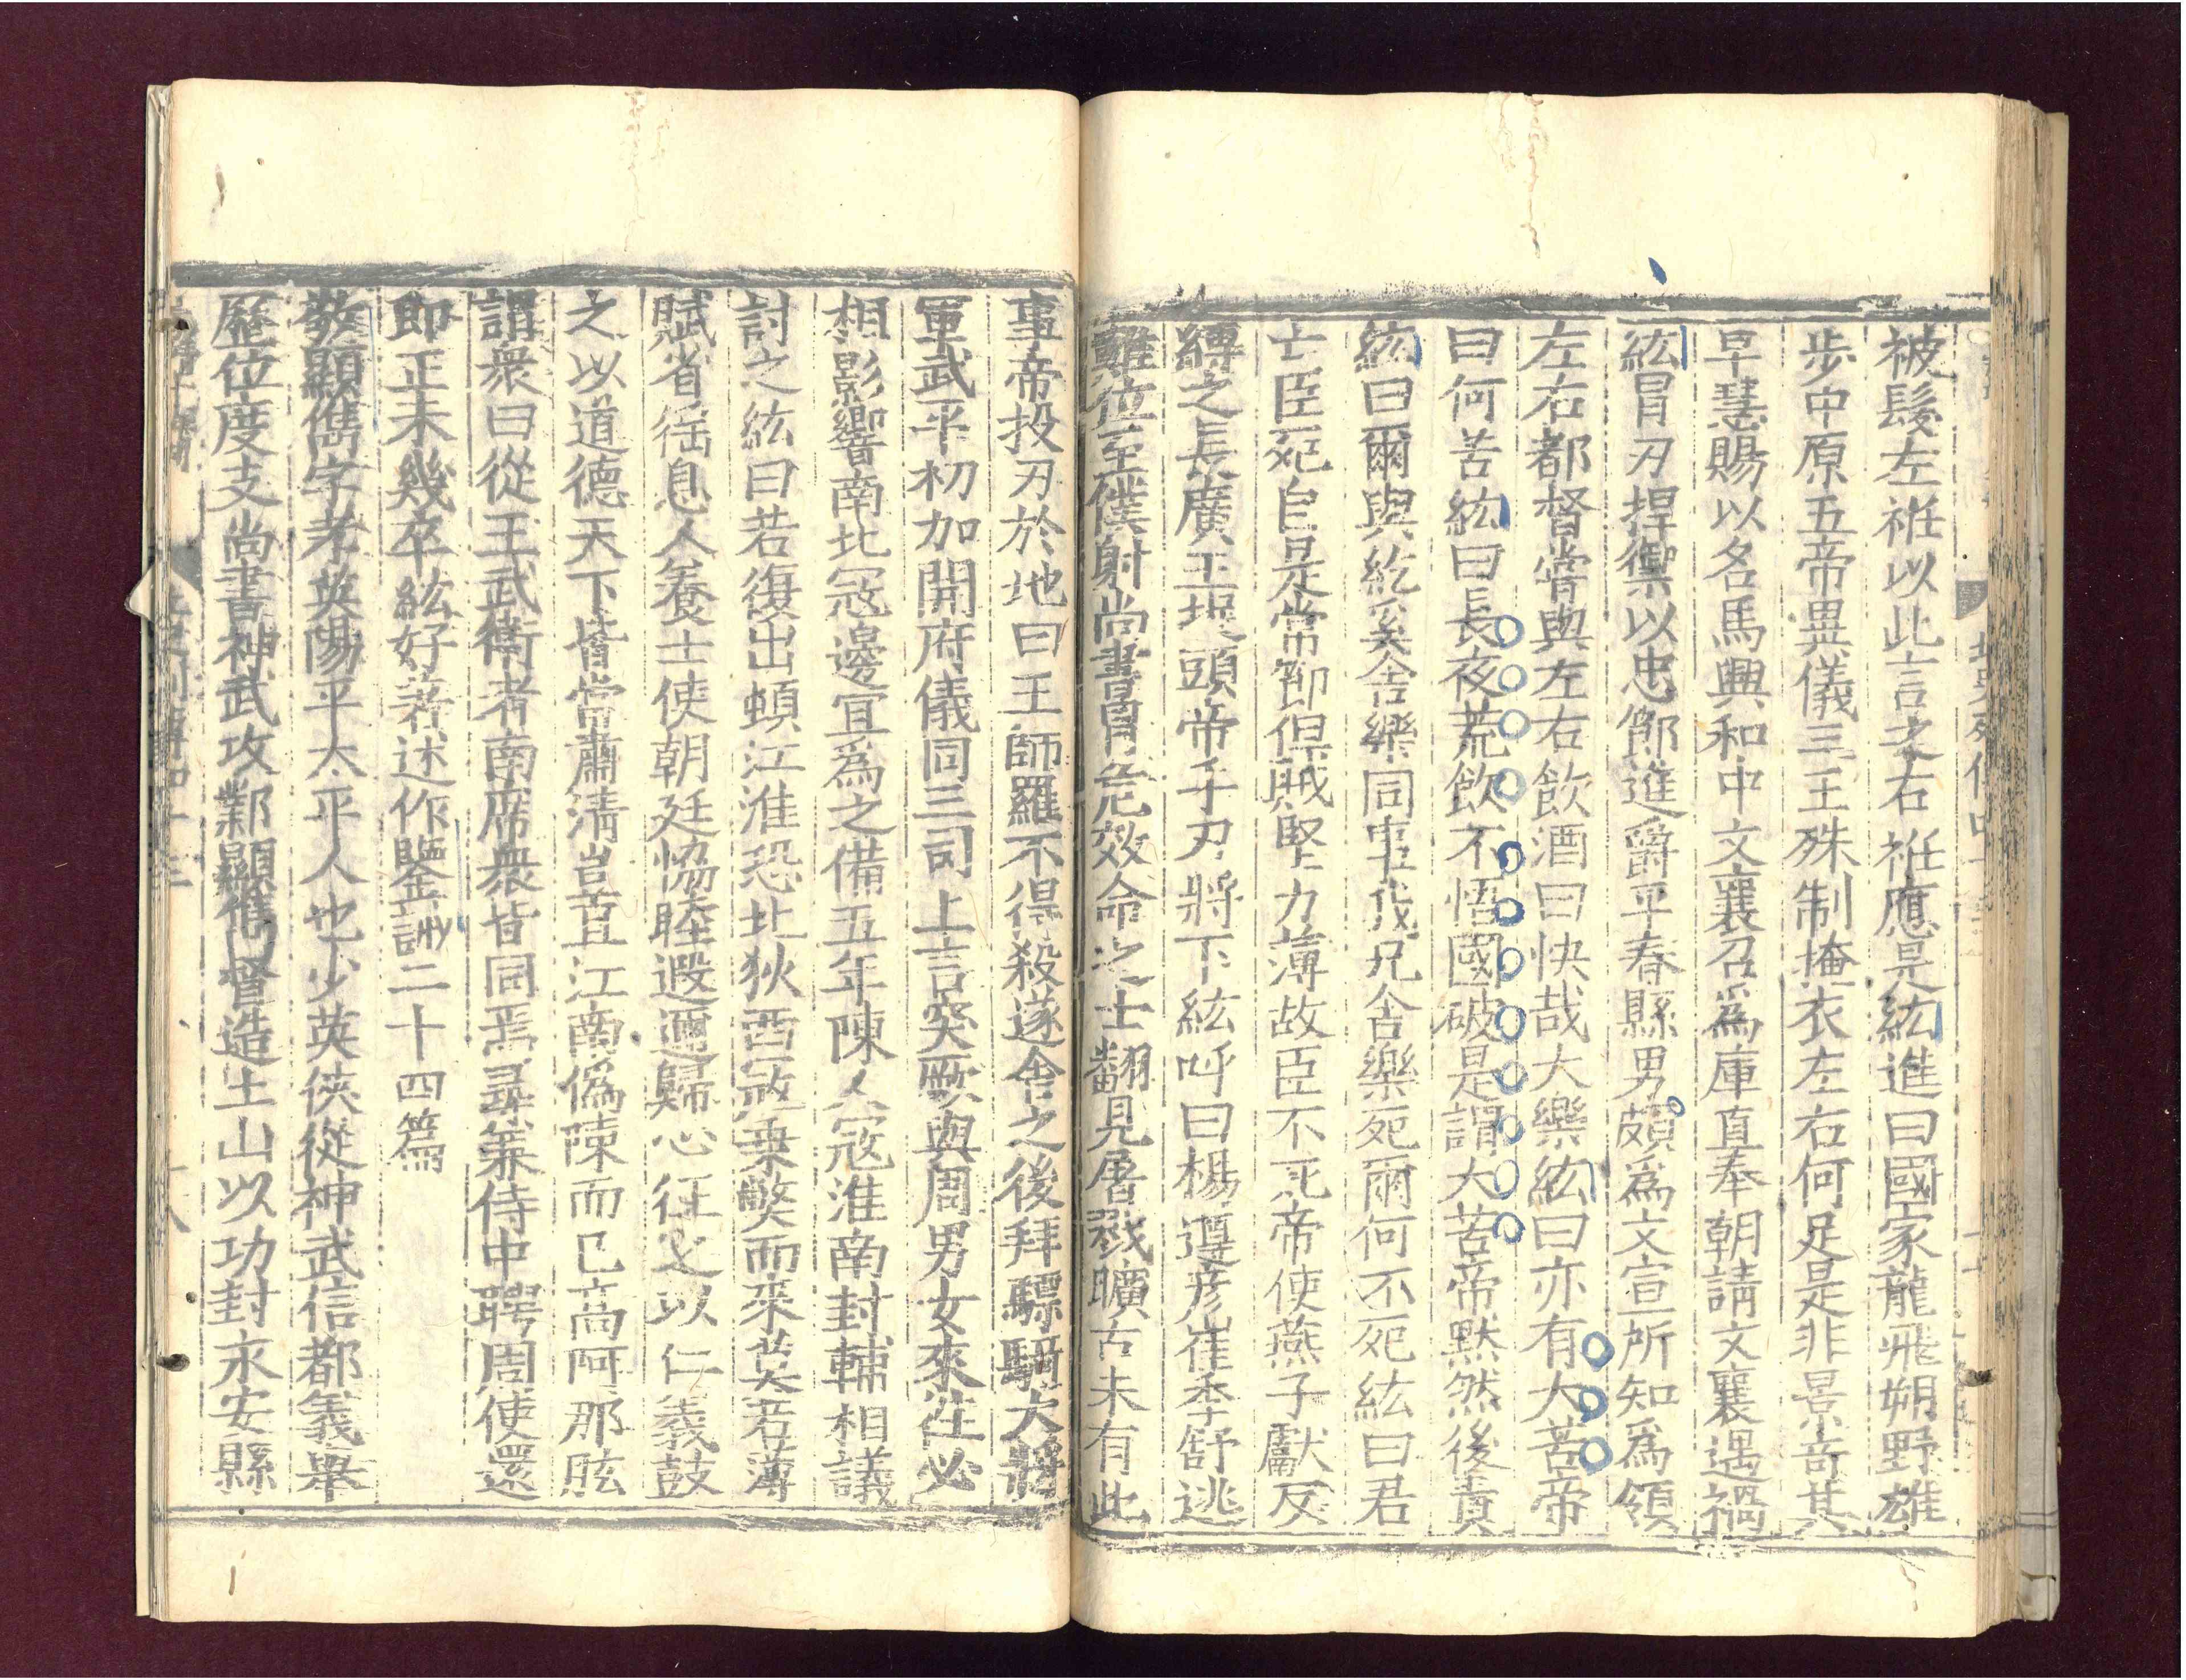 被髮左袵以此言之右袵應是紘進曰國家龍飛朔野雄
步中原五帝異儀三王殊制掩衣左右何足是非景奇其
早慧賜以名馬興和中文襄召爲庫直奉朝請文襄遇禍
紘冒刃捍禦以忠節進爵平春縣男頗爲文宣所知爲領
左右都督甞與左右飲酒曰快哉大樂紘曰亦有大苦帝
曰何苦紘曰長夜荒飲不悟國破是謂大苦帝默然後責
紘曰爾與紇奚舍樂同事我兄舍樂死爾何不死紘曰君
亡臣死自是常節但賊堅力薄故臣不死帝使燕子獻反
縛之長廣王捉頭帝手刃將下紘呼曰楊遵彥崔季舒逃
難位至僕射尚書冒危效命之士翻見屠戮曠古未有此
事帝投刃於地曰王師羅不得殺遂舍之後拜驃騎大將
軍武平初加開府儀同三司上言突厥與周男女來往必
相影響南北冦邊宜爲之備五年陳人寇淮南封輔相議
討之紘曰若復出頓江淮恐北狄西寇乗獘而來莫若薄
賦省徭息人養士使朝廷恊睦遐邇歸心征之以仁義鼓
之以道德天下皆當肅淸豈直江南僞陳而已高阿那肱
謂衆曰從王武衛者南席衆皆同焉尋兼侍中聘周使還
即正未幾卒紘好著述作鑒誡二十四篇
敬顯儁字孝英陽平太平人也少英俠從神武信都義舉
歷位度支尚書神武攻鄴顯儁督造土山以功封永安縣
十八